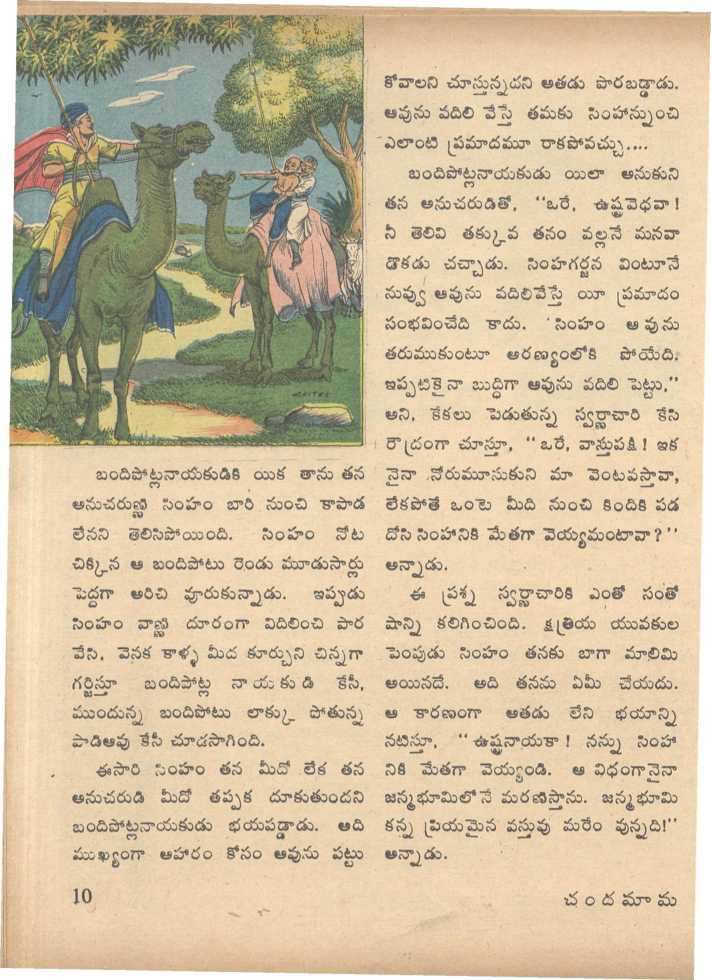 బందిపోట్లనాయకుడికి యిక తాను తన
అనుచరుణ్ణి సింహం బారి నుంచి కాపాడ
లేనని తెలిసిపోయింది. సింహం నోట
చిక్కిన ఆ బందిపోటు రెండు మూడుసార్లు
పెద్దగా అరిచి వూరుకున్నాడు. ఇప్పుడు
సింహం వాణ్ణి దూరంగా విదిలించి పార
వేసి, వెనక కాళ్ళ మీద కూర్చుని చిన్నగా
గర్జిస్తూ బందిపోట్ల నాయకుడి కేసీ,
ముందున్న బందిపోటు లాక్కు పోతున్న
పాడిఆవు కేసీ చూడసాగింది.
ఈసారి సింహం తన మీదో లేక తన
అనుచరుడి మీదో తప్పక దూకుతుందని
బందిపోట్లనాయకుడు భయపడ్డాడు. అది
ముఖ్యంగా ఆహారం కోసం ఆవును పట్టు
కోవాలని చూస్తున్నదని అతడు పొరబడ్డాడు.
ఆవును వదిలి వేస్తే తమకు సింహాన్నుంచి
ఎలాంటి ప్రమాదమూ రాకపోవచ్చు....
బందిపోట్లనాయకుడు యిలా అనుకుని
తన అనుచరుడితో, ‘‘ఒరే, ఉష్ట్రవెధవా!
నీ తెలివి తక్కువ తనం వల్లనే మనవా
డొకడు చచ్చాడు. సింహగర్జన వింటూనే
నువ్వు ఆవును వదిలివేస్తే యీ ప్రమాదం
సంభవించేది కాదు. సింహం ఆవును
తరుముకుంటూ అరణ్యంలోకి పోయేది.
ఇప్పటికైనా బుద్ధిగా ఆవును వదిలి పెట్టు,’’
అని, కేకలు పెడుతున్న స్వర్ణాచారి కేసి
రౌద్రంగా చూస్తూ, ‘‘ఒరే, వాస్తుపక్షి! ఇక
నైనా నోరుమూసుకుని మా వెంటవస్తావా,
లేకపోతే ఒంటె మీది నుంచి కిందికి పడ
దోసి సింహానికి మేతగా వెయ్యమంటావా?’’
అన్నాడు.
ఈ ప్రశ్న స్వర్ణాచారికి ఎంతో సంతో
షాన్ని కలిగించింది. క్షత్రియ యువకుల
పెంపుడు సింహం తనకు బాగా మాలిమి
అయినదే. అది తనను ఏమీ చేయదు.
ఆ కారణంగా అతడు లేని భయాన్ని
నటిస్తూ, ‘‘ఉష్ట్రనాయకా! నన్ను సింహా
నికి మేతగా వెయ్యండి. ఆ విధంగానైనా
జన్మభూమిలోనే మరణిస్తాను. జన్మభూమి
కన్న ప్రియమైన వస్తువు మరేం వున్నది!’’
అన్నాడు.
10
చందమామ